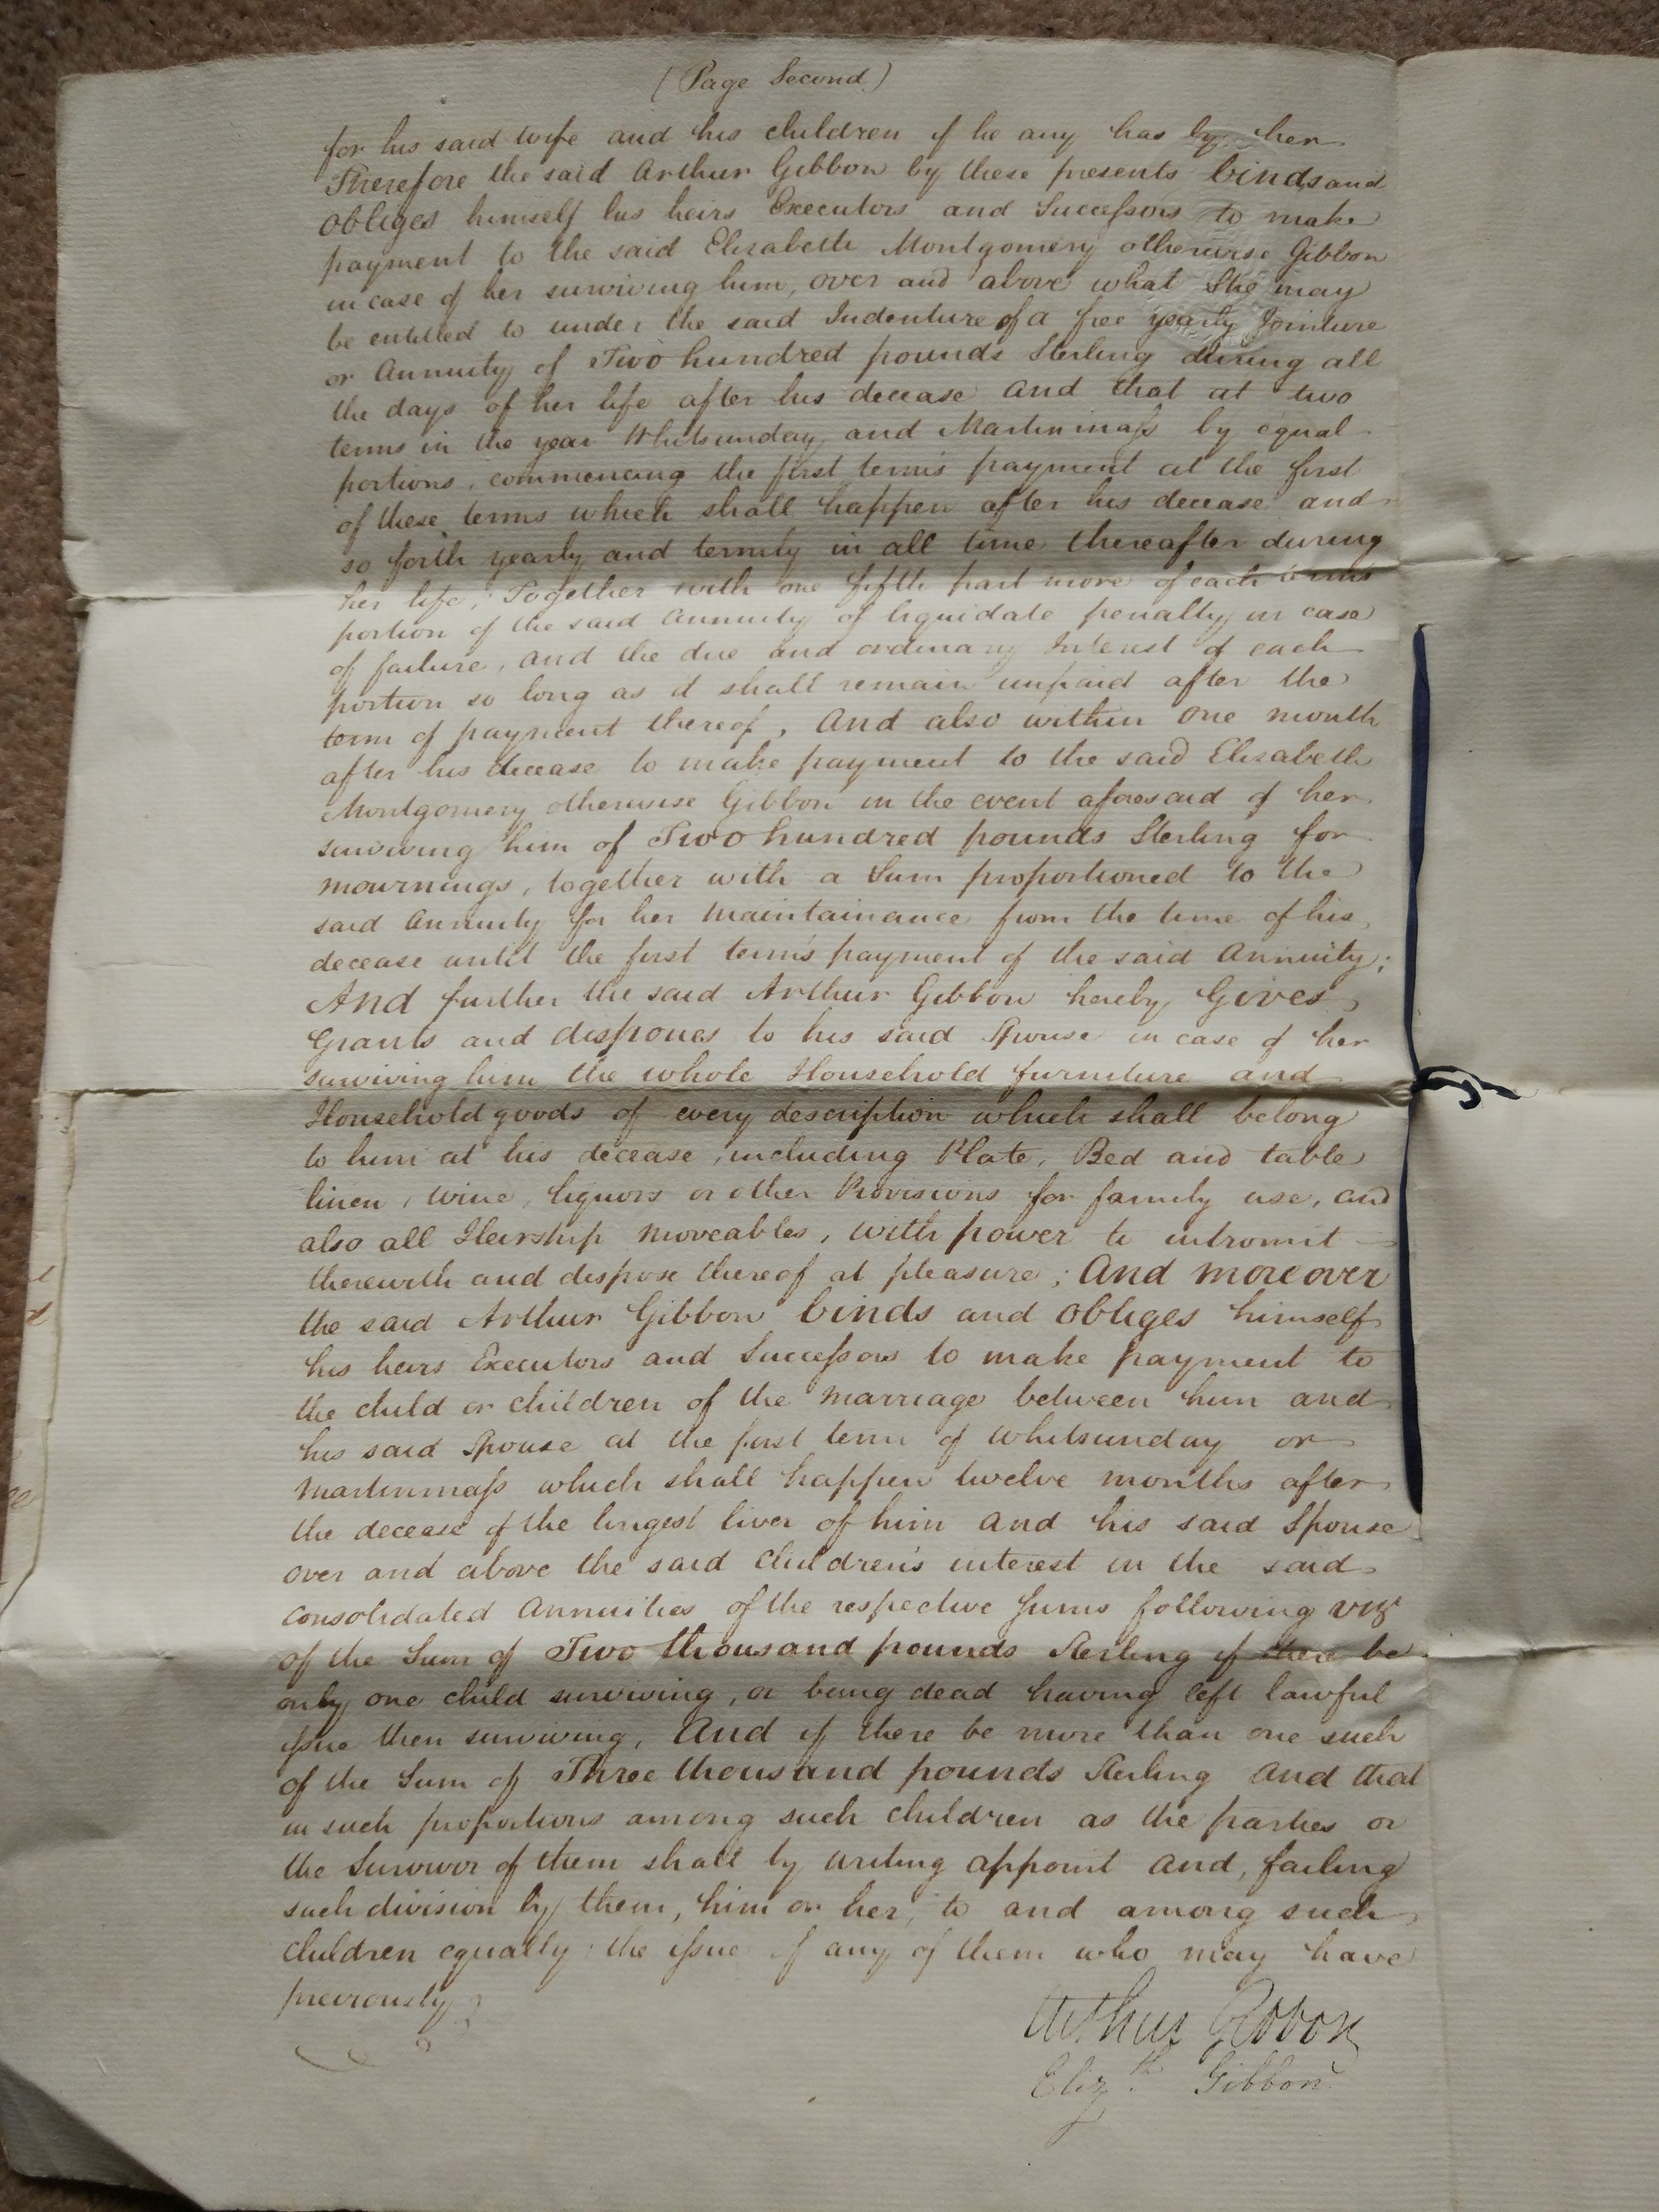 (Page Second)
for his said wife and his children if he any has by her
Therefore the said Arthur Gibbon by these presents binds and
obliges himself his heirs Executors and Successors to make
payment to the said Elizabeth Montgomery otherwise Gibbon
in case of her surviving him, over and above what She may
be entitled to under the said Indenture of a free yearly Jointure
or Annuity of Two hundred pounds Sterling during all
the days of her life after his decease and that at two
terms in the year Whitsunday and Martinmass by equal
portions, commencing the first term's payment at the first
of these terms which shall happen after his decease and
so forth yearly and termly in all time thereafter during
her life; Together with one fifth part more of each term's
portion of the said Annuity of liquidate penalty in case
of failure, and the due and ordinary Interest of each
portion so long as it shall remain unpaid after the
term of payment thereof, And also within one month
after his decease to make payment to the said Elizabeth
Montgomery otherwise Gibbon in the event aforesaid of her
surviving him of Two hundred pounds Sterling for
mournings, together with a Sum proportioned to the
said Annuity for her Maintainance from the time of his
decease until the first term's payment of the said Annuity;
And further the said Arthur Gibbon hereby Gives
Grants and dispones to his said Spouse in case of her
surviving him the whole Household furniture and
Household goods of every description which shall belong
to him at his decease, including Plate, Bed and table
linen, wine, liquors or other Provisions for family use, and
also all Heirship Moveables, with power to intromit
therewith and dispose thereof at pleasure; And moreover
the said Arthur Gibbon binds and obliges himself
his heirs Executors and Successors to make payment to
the child or children of the marriage between him and
his said Spouse at the first term of Whitsunday or
Martinmass which shall happen twelve months after
the decease of the longest liver of him and his said Spouse
over and above the said Children's interest in the said
Consolidated Annuities of the respective Sums following vizt
of the Sum of Two thousand pounds Sterling if there be
only one child surviving, or being dead having left lawful
issue then surviving, And if there be more than one such
of the Sum of Three thousand pounds Sterling And that
in such proportions among such children as the parties or
the Survivor of them shall by writing appoint and, failing
such division by them, him or her, to and among such
children equally the issue if any of them who may have
previously
Arthur Gibbon
Elizth Gibbon